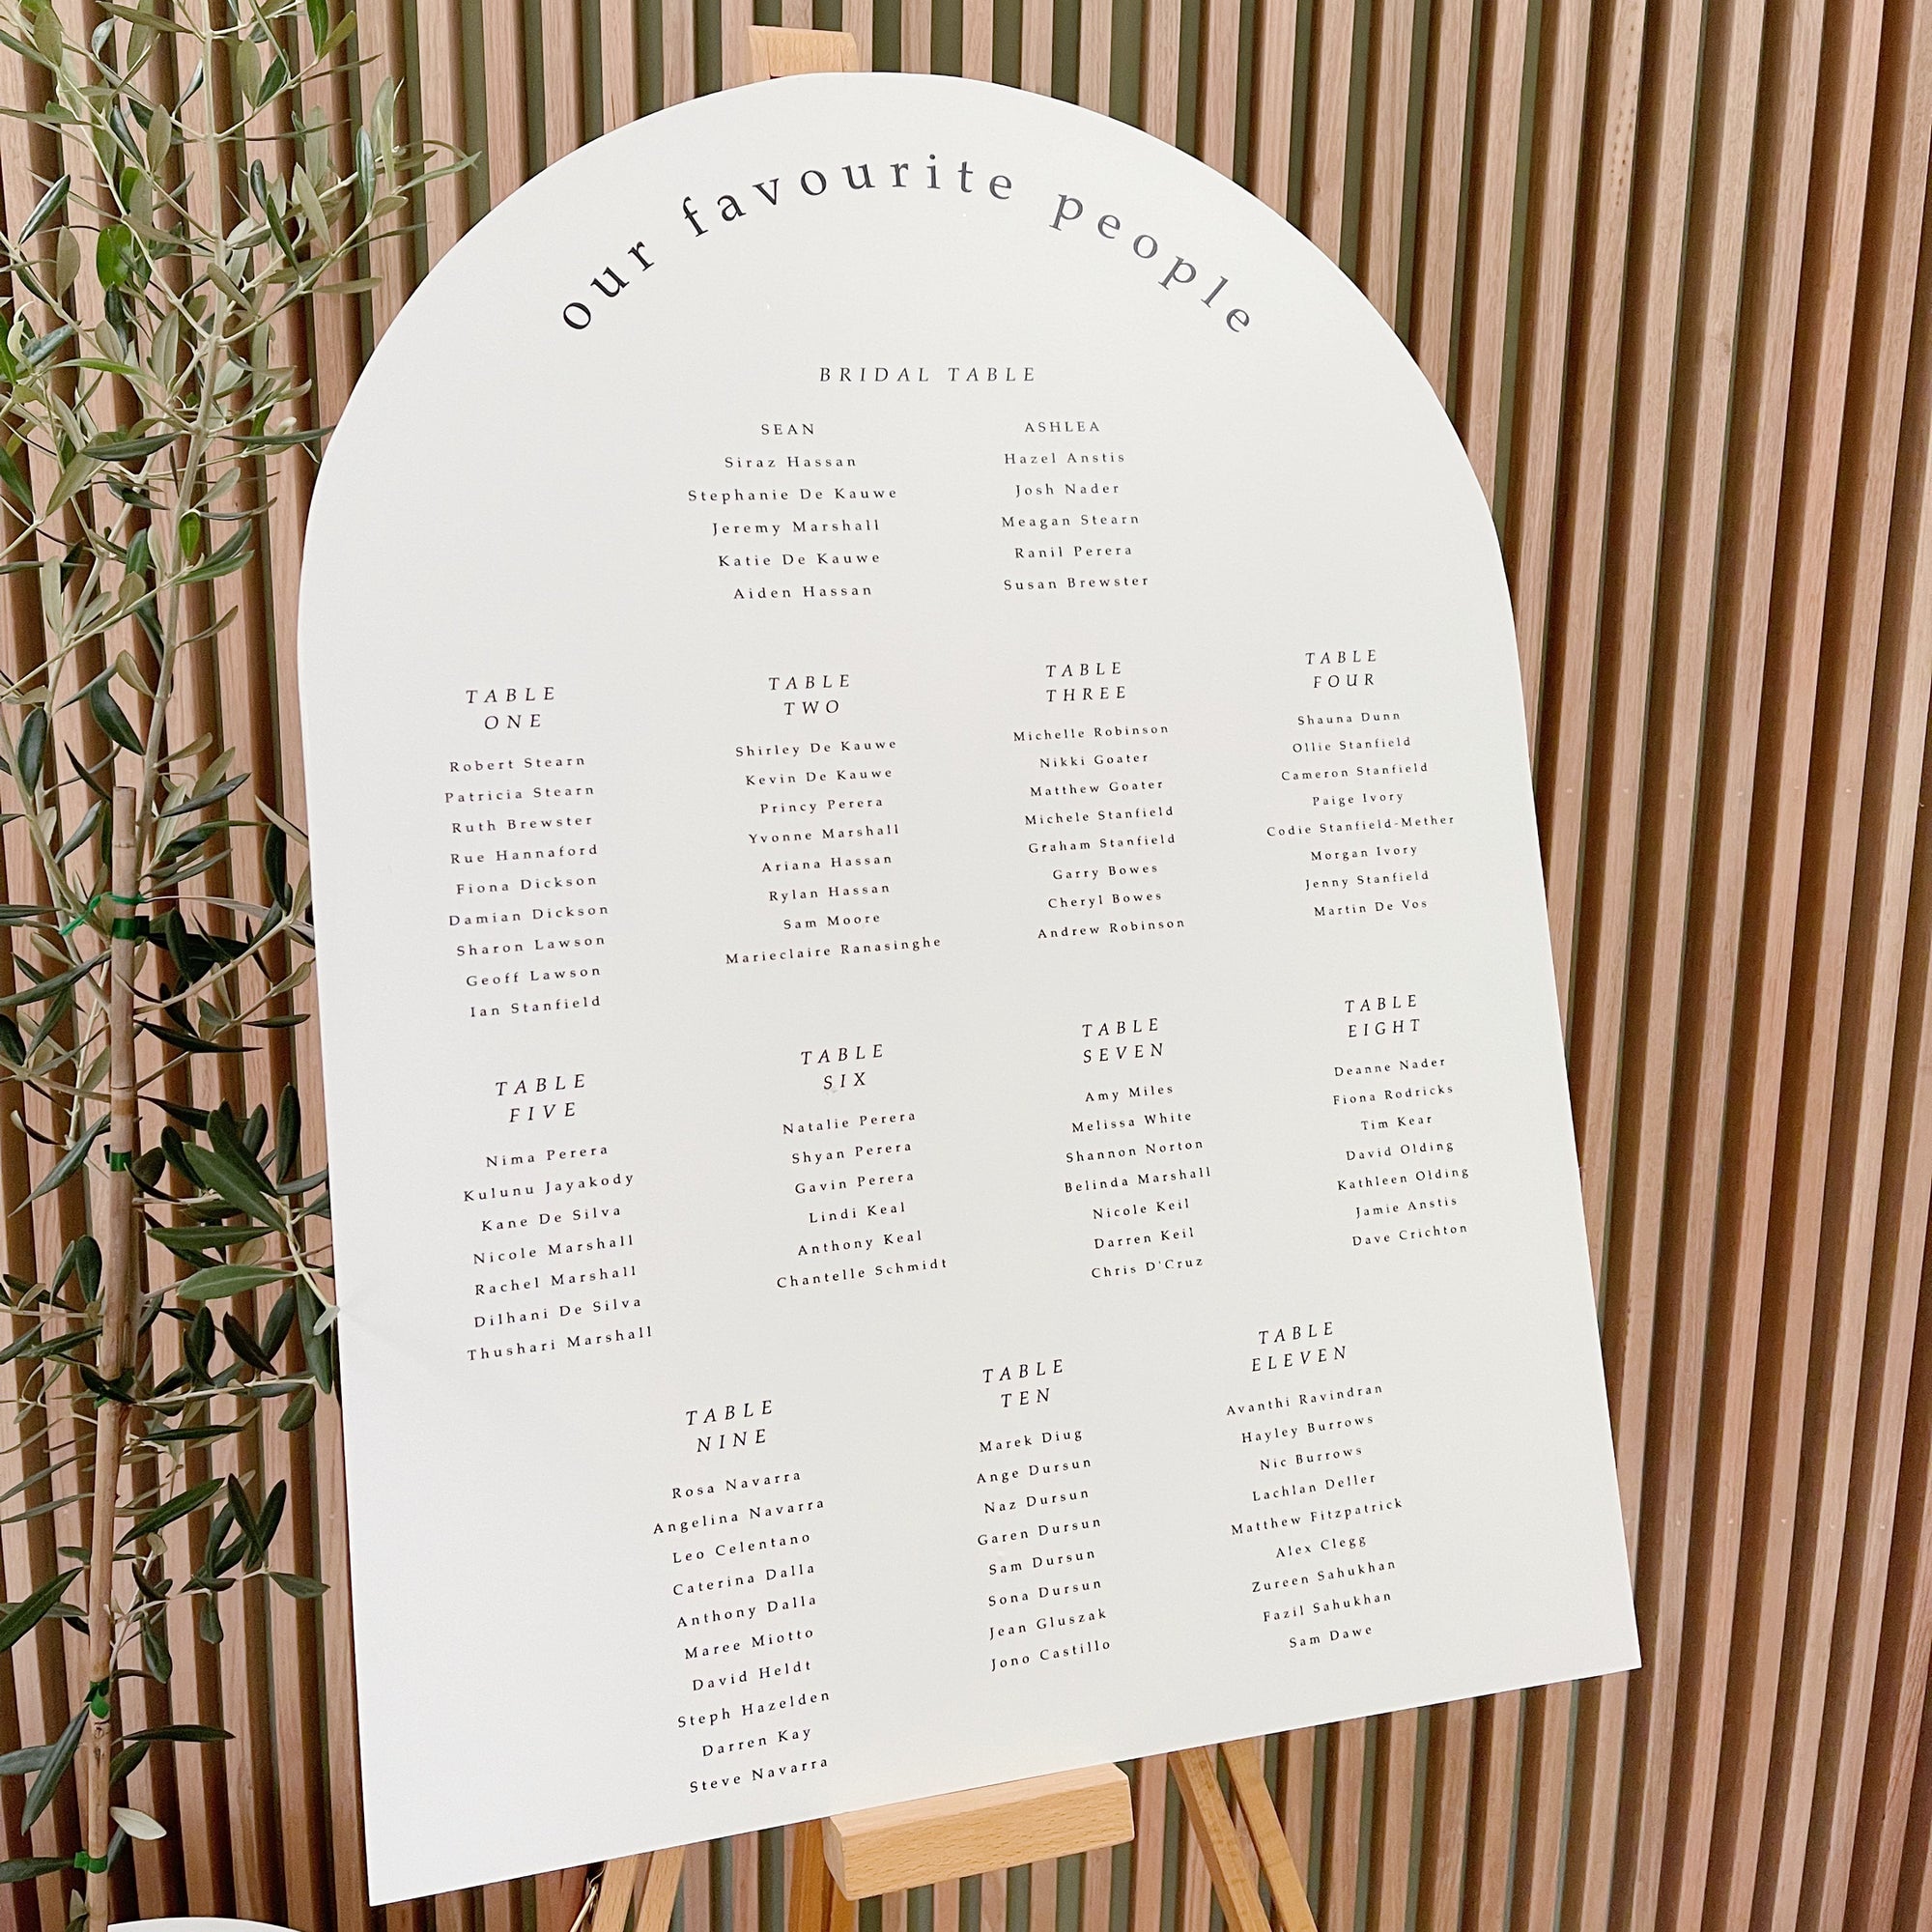 our favourite people
BRIDAL TABLE
SEAN
Siraz Hassan
Stephanie De Kauwe
Jeremy Marshall
Katie De Kauwe
Aiden Hassan
ASHLEA
Hazel Anstis
Josh Nader
Meagan Stearn
Ranil Perera
Susan Brewster
TABLE
ONE
Robert Stearn
Patricia Stearn
Ruth Brewster
Rue Hannaford
Fiona Dickson
Damian Dickson
Sharon Lawson
Geoff Lawson
Ian Stanfield
TABLE
TWO
Shirley De Kauwe
Kevin De Kauwe
Princy Perera
Yvonne Marshall
Ariana Hassan
Rylan Hassan
Sam Moore
Marieclaire Ranasinghe
TABLE
THREE
Michelle Robinson
Nikki Goater
Matthew Goater
Michele Stanfield
Graham Stanfield
Garry Bowes
Cheryl Bowes
Andrew Robinson
TABLE
FOUR
Shauna Dunn
Ollie Stanfield
Cameron Stanfield
Paige Ivory
Codie Stanfield-Mether
Morgan Ivory
Jenny Stanfield
Martin De Vos
TABLE
FIVE
Nima Perera
Kulunu Jayakody
Kane De Silva
Nicole Marshall
Rachel Marshall
Dilhani De Silva
Thushari Marshall
TABLE
SIX
Natalie Perera
Shyan Perera
Gavin Perera
Lindi Keal
Anthony Keal
Chantelle Schmidt
TABLE
SEVEN
Amy Miles
Melissa White
Shannon Norton
Belinda Marshall
Nicole Keil
Darren Keil
Chris D'Cruz
TABLE
EIGHT
Deanne Nader
Fiona Rodricks
Tim Kear
David Olding
Kathleen Olding
Jamie Anstis
Dave Crichton
TABLE
NINE
Rosa Navarra
Angelina Navarra
Leo Celentano
Caterina Dalla
Anthony Dalla
Maree Miotto
David Heldt
Steph Hazelden
Darren Kay
Steve Navarra
TABLE
TEN
Marek Diug
Ange Dursun
Naz Dursun
Garen Dursun
Sam Dursun
Sona Dursun
Jean Gluszak
Jono Castillo
TABLE
ELEVEN
Avanthi Ravindran
Hayley Burrows
Nic Burrows
Lachlan Deller
Matthew Fitzpatrick
Alex Clegg
Zureen Sahukhan
Fazil Sahukhan
Sam Dawe